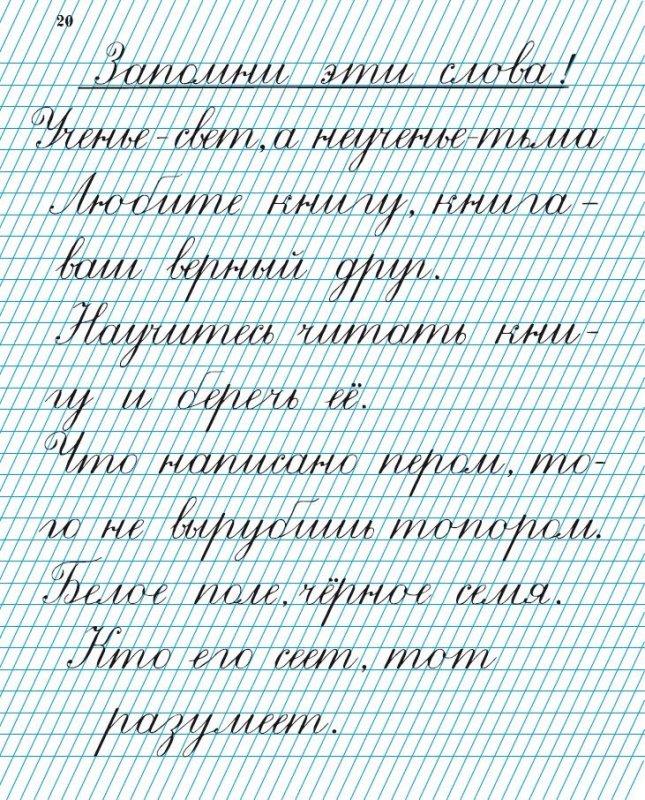 20
Запомни эти слова!
Ученье - свет, а неученье - тьма
Любите книгу, книга -
ваш верный друг.
Научитесь читать кни-
гу и беречь её.
Что написано пером, то-
го не вырубишь топором.
Белое поле, чёрное семя.
Кто его сеет, тот
разумеет.